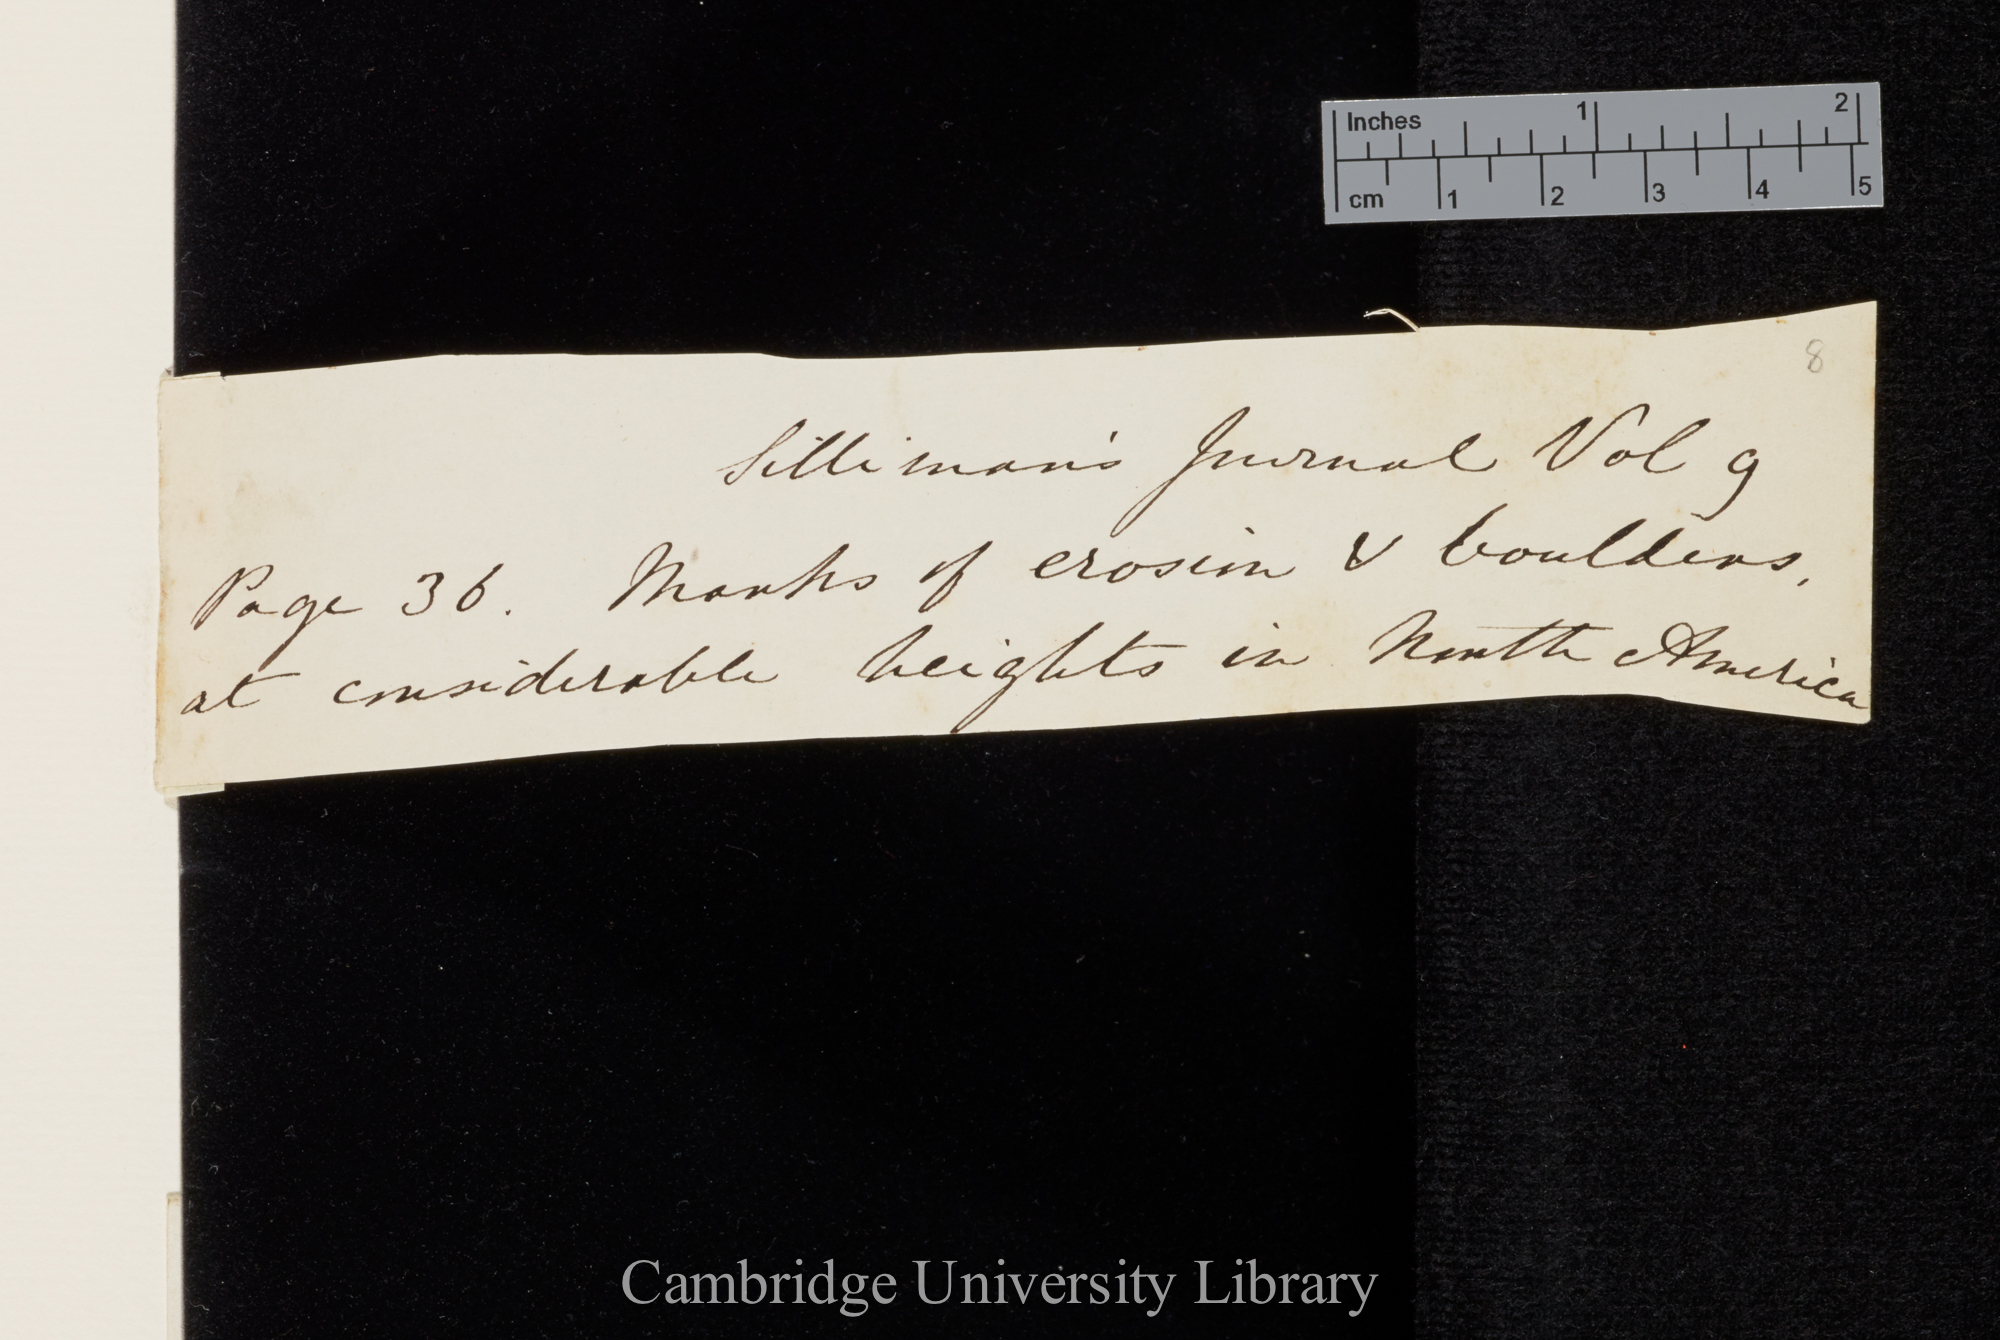 Inches 1 2
cm 1 2 3 4 5
8
Silliman's Journal Vol 9
Page 36. Marks of erosion & boulders,
at considerable heights in North America
Cambridge University Library